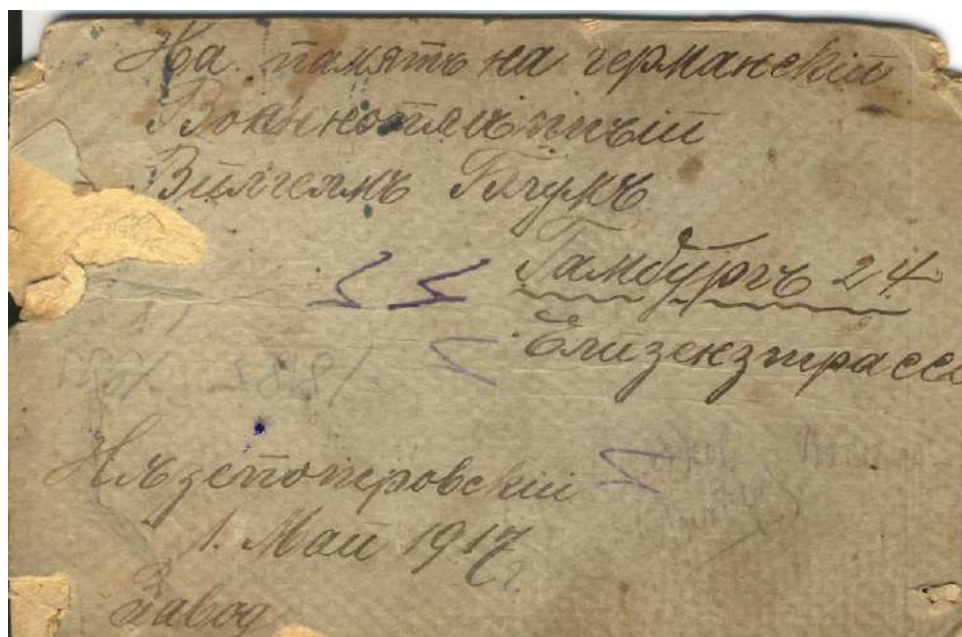 На память на германскій
Военнопленный
Вилгелмъ Блумъ
Гамбургъ 24
Елизензтрассе
Нязепетровскій
1. Май 1917 г.
Завод